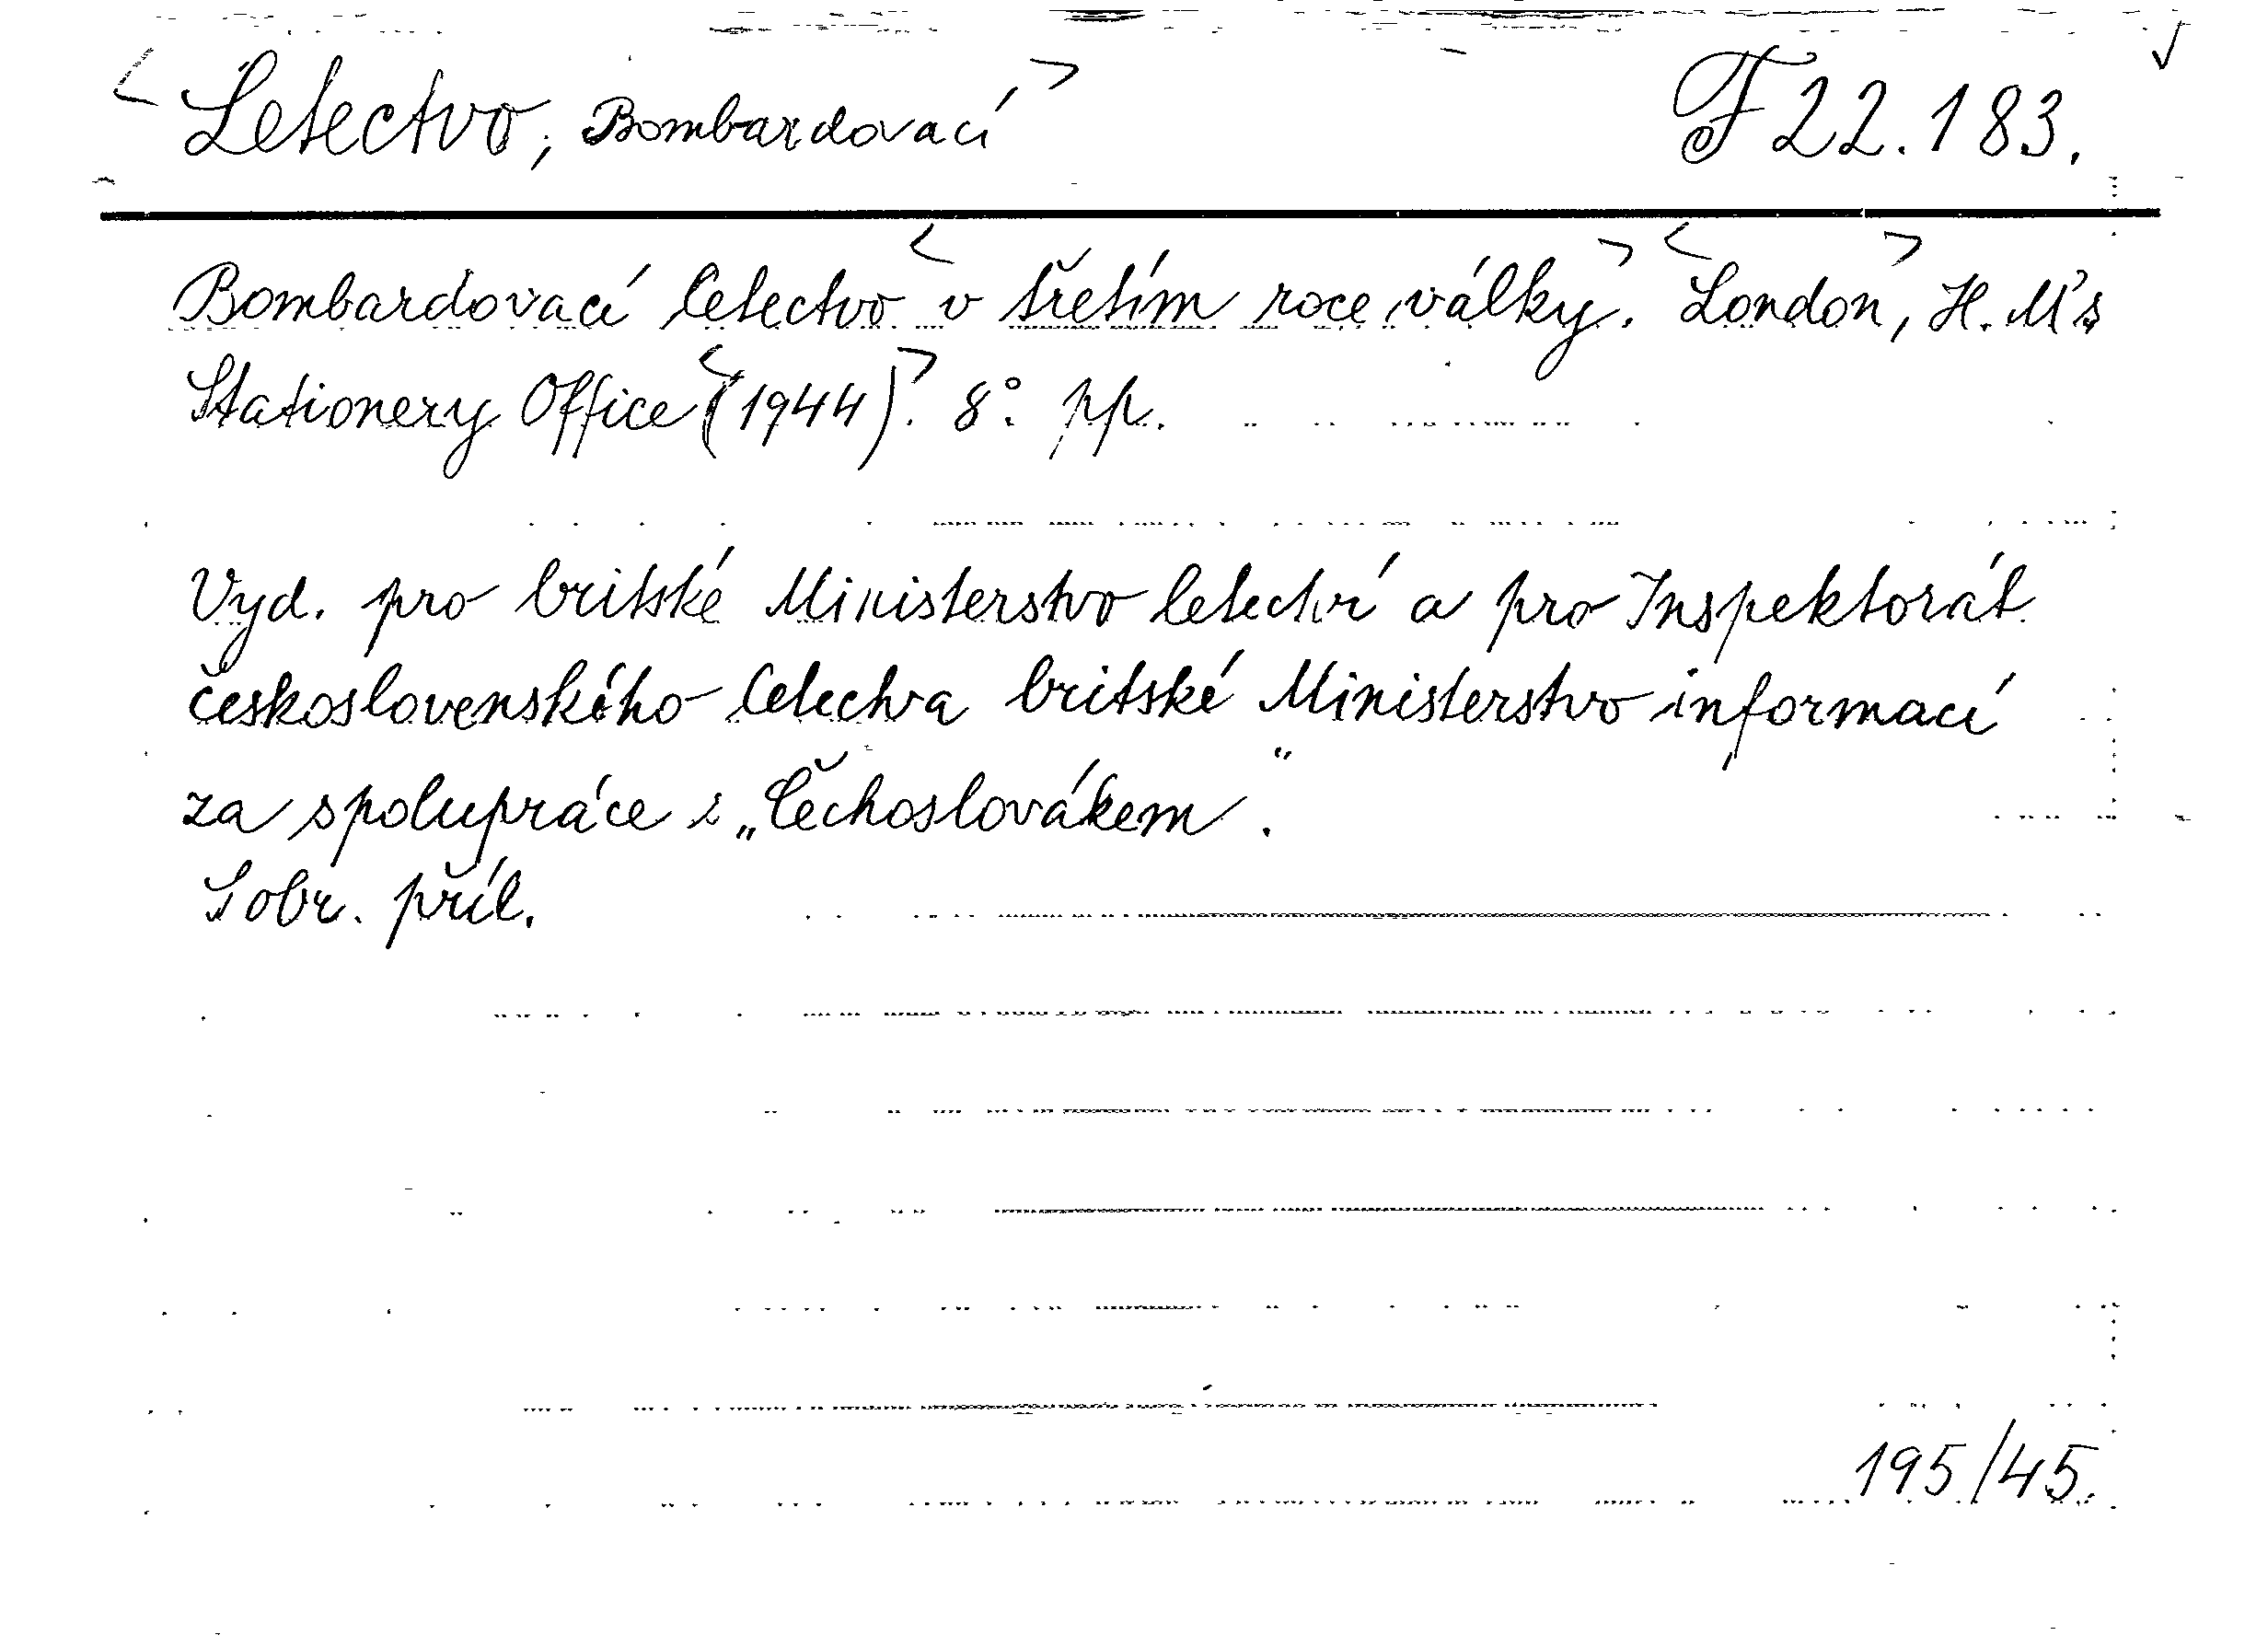 <Letectvo, Bombardovací> F 22.183.
Bombardovací letectvo <v třetím roce války>. <London>, H. M's
Stationery Office <(1944)>. 8°. pp.
Vyd. pro britské Ministerstvo letectví a pro Inspektorát
československého letectva britské Ministerstvo informací
za spolupráce s „Čechoslovákem“.
S obr. příl.
195/45.